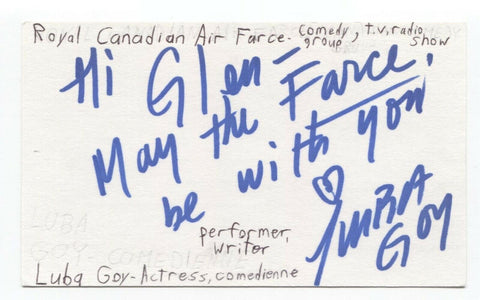 Royal Canadian Air Farce - Comedy group, t.v, radio show
Hi Glen =
May the Farce,
be with you
♡ LUBA
GOY
performer,
writer
LUBA
GOY - COMEDIENNE
Luba Goy - Actress, comedienne